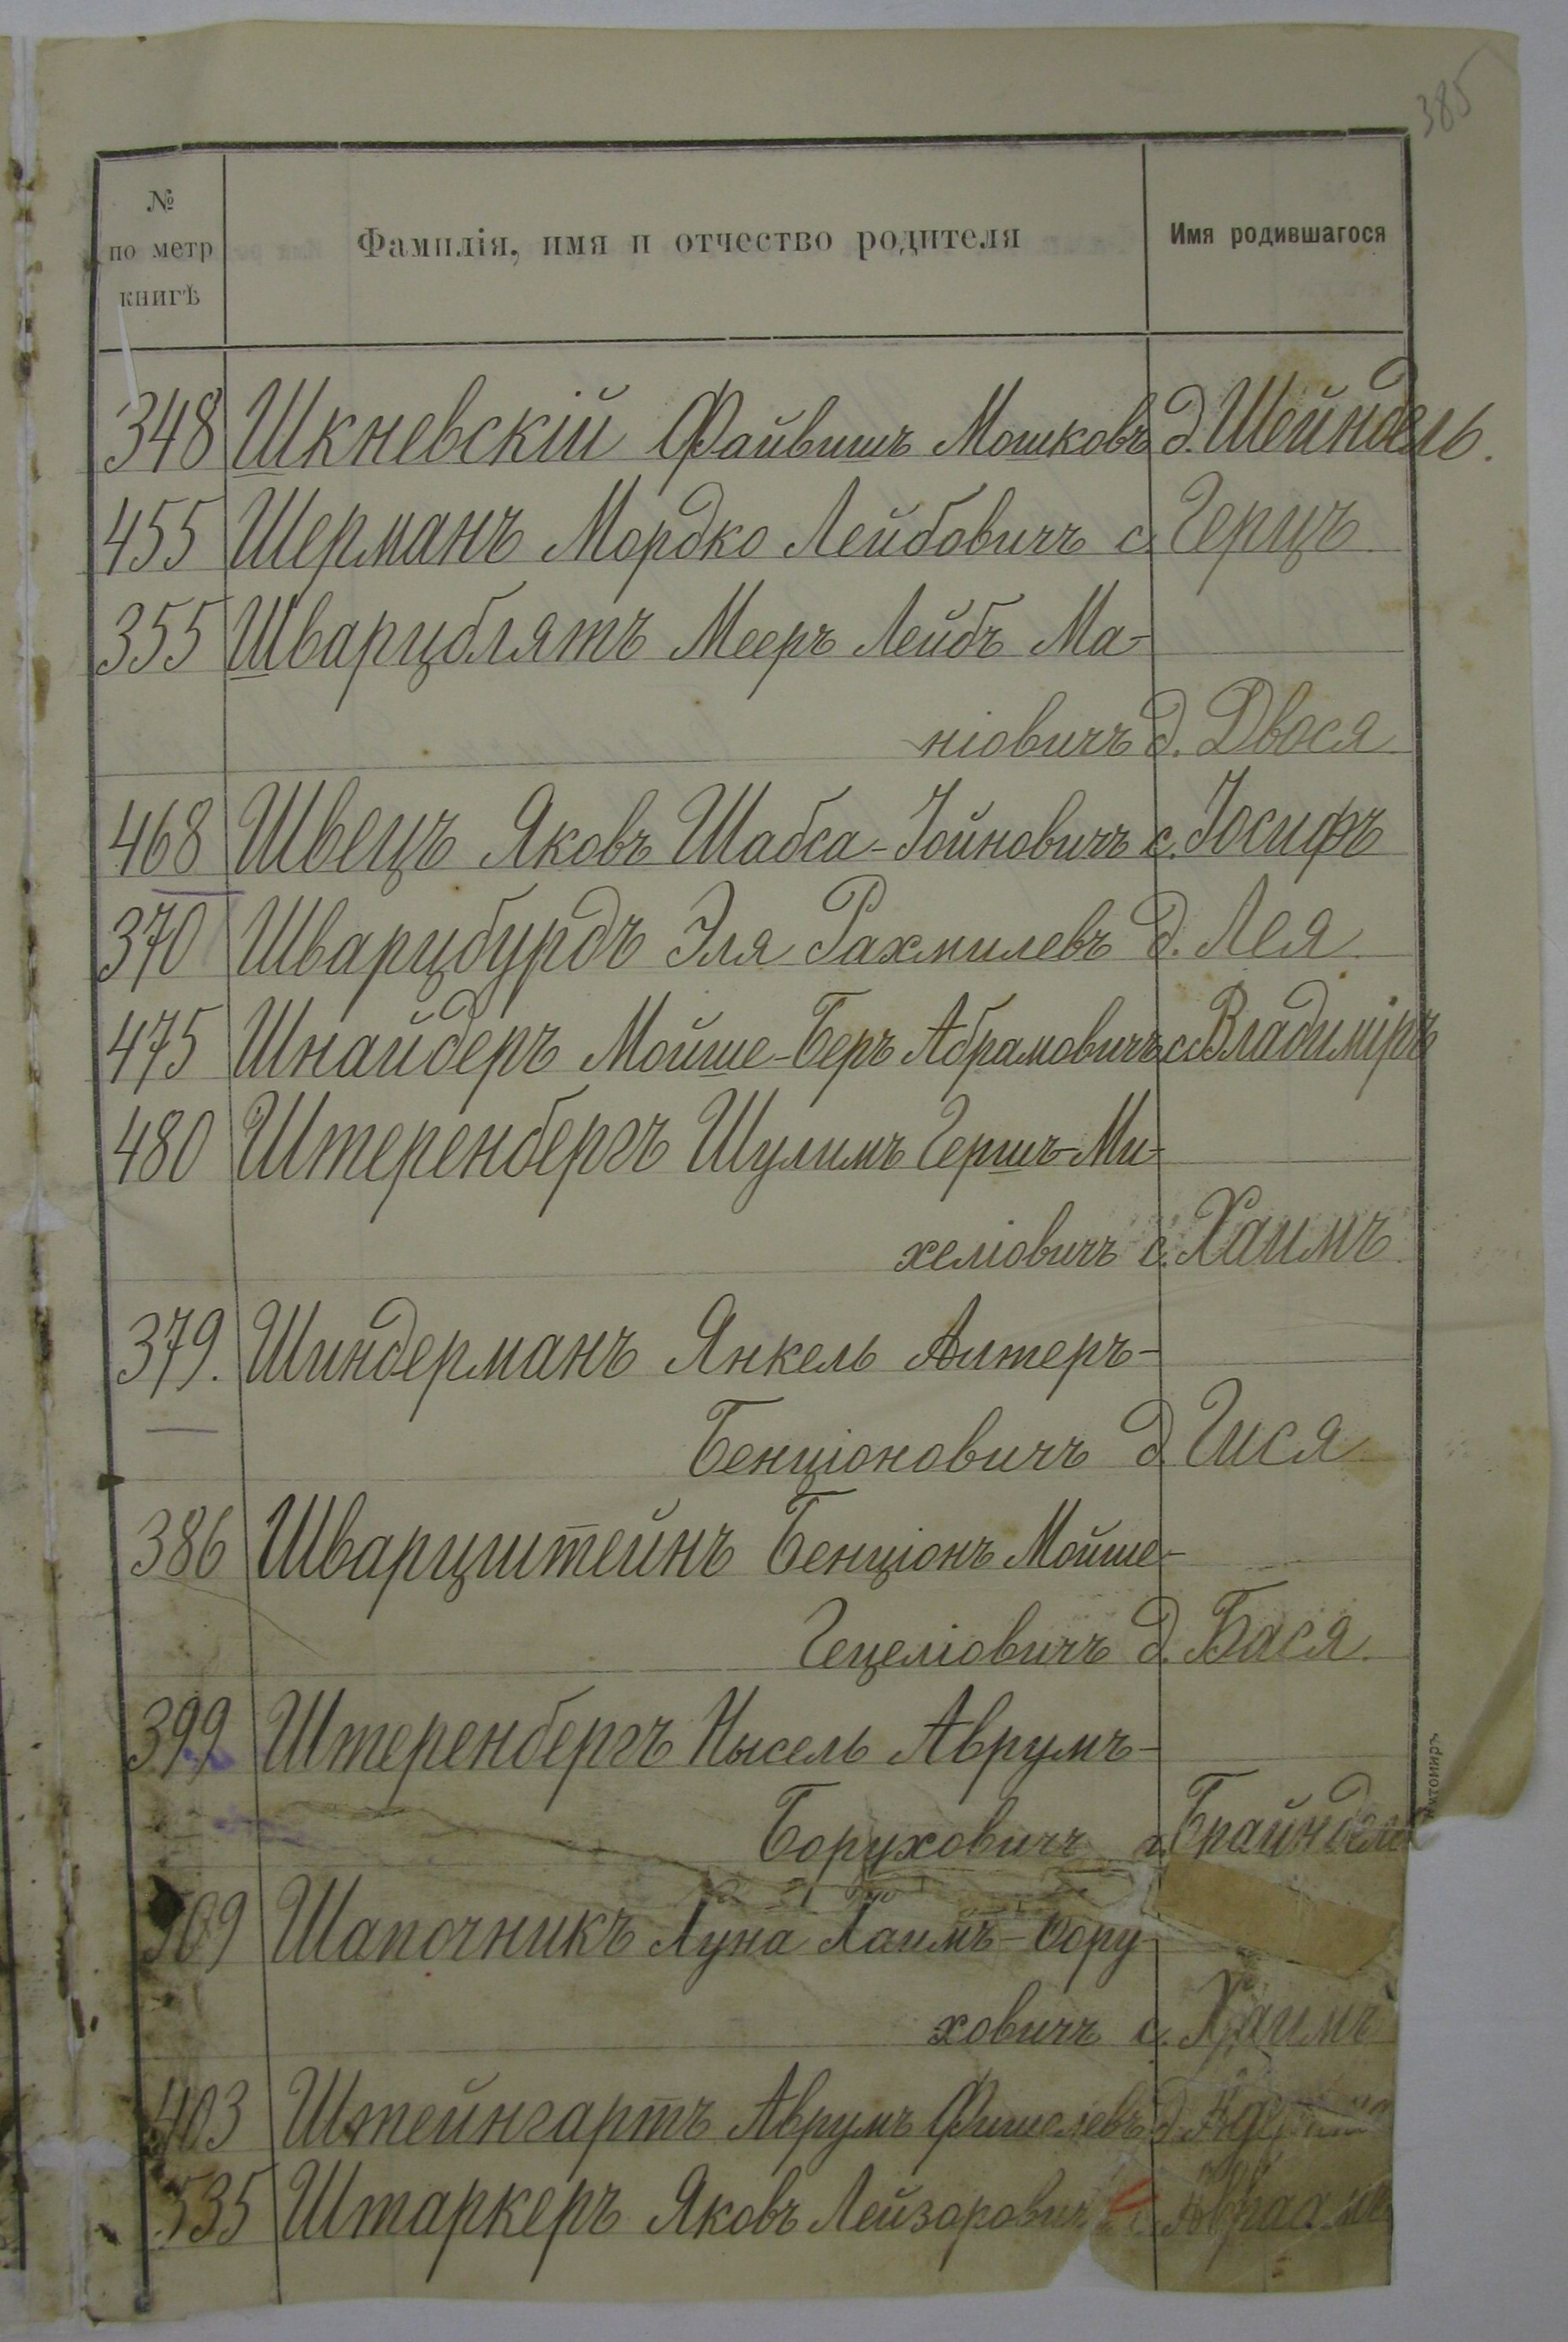 385
№
по метр
книгѣ
Фамилія, имя и отчество родителя
Имя родившагося
348 Шкневскій Файвишъ Мошковъ д. Шейндель.
455 Шерманъ Мордко Лейбовичъ с. Герцъ
355 Шварцблятъ Мееръ Лейбъ Ма-
ніовичъ д. Двося
468 Швецъ Яковъ Шабса-Іойновичъ с. Іосифъ
370 Шварцбурдъ Эля Рахмилевъ д. Лея
475 Шнайдеръ Мойше-Беръ Абрамовичъ с. Владиміръ
480 Штеренбергъ Шулимъ Гершъ-Ми-
хеліовичъ с. Хаимъ
379. Шиндерманъ Янкель Алтеръ-
Бенціоновичъ д. Гися
386 Шварцштейнъ Бенціонъ Мойше-
Гецеліовичъ д. Бася
399 Штеренбергъ Нысель Аврумъ-
Боруховичъ д. Брайндель
509 Шапочникъ Хуна Хаимъ-Бору-
ховичъ с. Хаимъ
403 Штейнгартъ Аврумъ Фишелевъ д.
535 Штаркеръ Яковъ Лейзоровичъ с.
Житомиръ